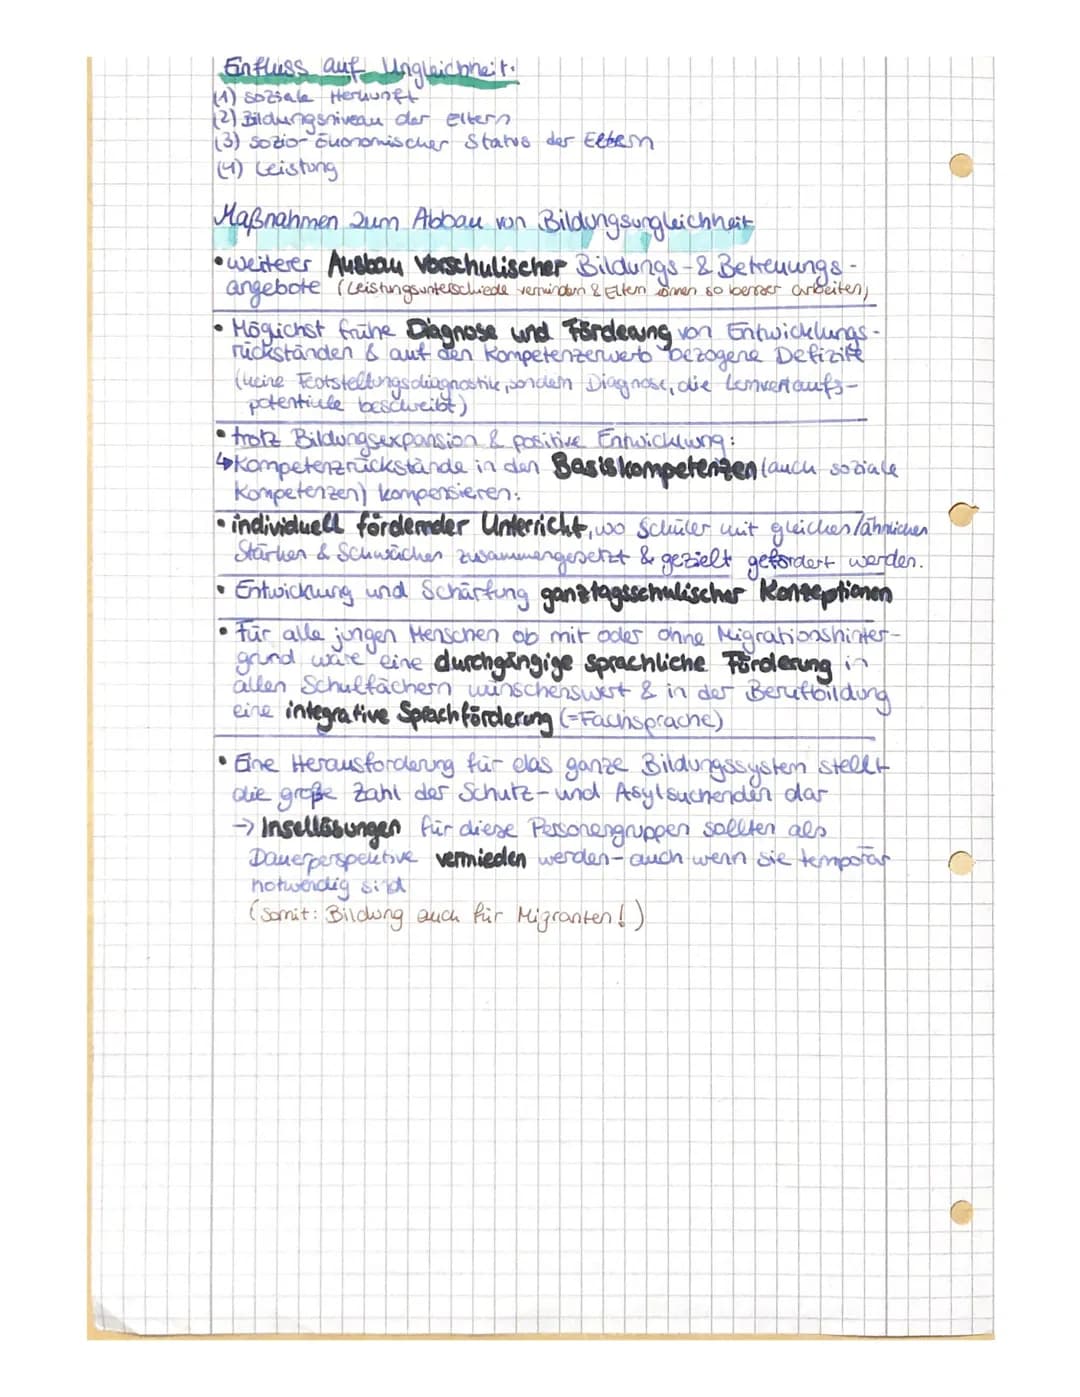 Einfluss auf Ungleichheit:
(1) soziale Herkunft
(2) Bildungsniveau der Eltern
(3) sozio-ökonomischer Status der Eltern
(4) Leistung
Maßnahmen zum Abbau von Bildungsungleichheit
• weiterer Ausbau vorschulischer Bildungs- & Betreuungs-
angebote (Leistungsunterschiede vermindern & Eltern können so besser arbeiten)
• Möglichst frühe Diagnose und Förderung von Entwicklungs-
rückständen & auf den Kompetenzerwerb bezogene Defizite
(keine Feststellungsdiagnostik, sondern Diagnose, die Lernverlaufs-
potentiale beschreibt)
• trotz Bildungsexpansion & positive Entwicklung:
↳ Kompetenzrückstände in den Basiskompetenzen (auch soziale
Kompetenzen) kompensieren:
• individuell fördernder Unterricht, wo Schüler mit gleichen/ähnlichen
Stärken & Schwächen zusammengesetzt & gezielt gefördert werden.
• Entwicklung und Schärfung ganztagsschulischer Konzeptionen
• Für alle jungen Menschen ob mit oder ohne Migrationshinter-
grund wäre eine durchgängige sprachliche Förderung in
allen Schulfächern wünschenswert & in der Berufbildung
eine integrative Sprachförderung (=Fachsprache)
• Eine Herausforderung für das ganze Bildungssystem stellt
die große Zahl der Schutz- und Asylsuchenden dar
→ Insellösungen für diese Personengruppen sollten als
Dauerperspektive vermieden werden - auch wenn sie temporär
notwendig sind
(somit: Bildung auch für Migranten!)